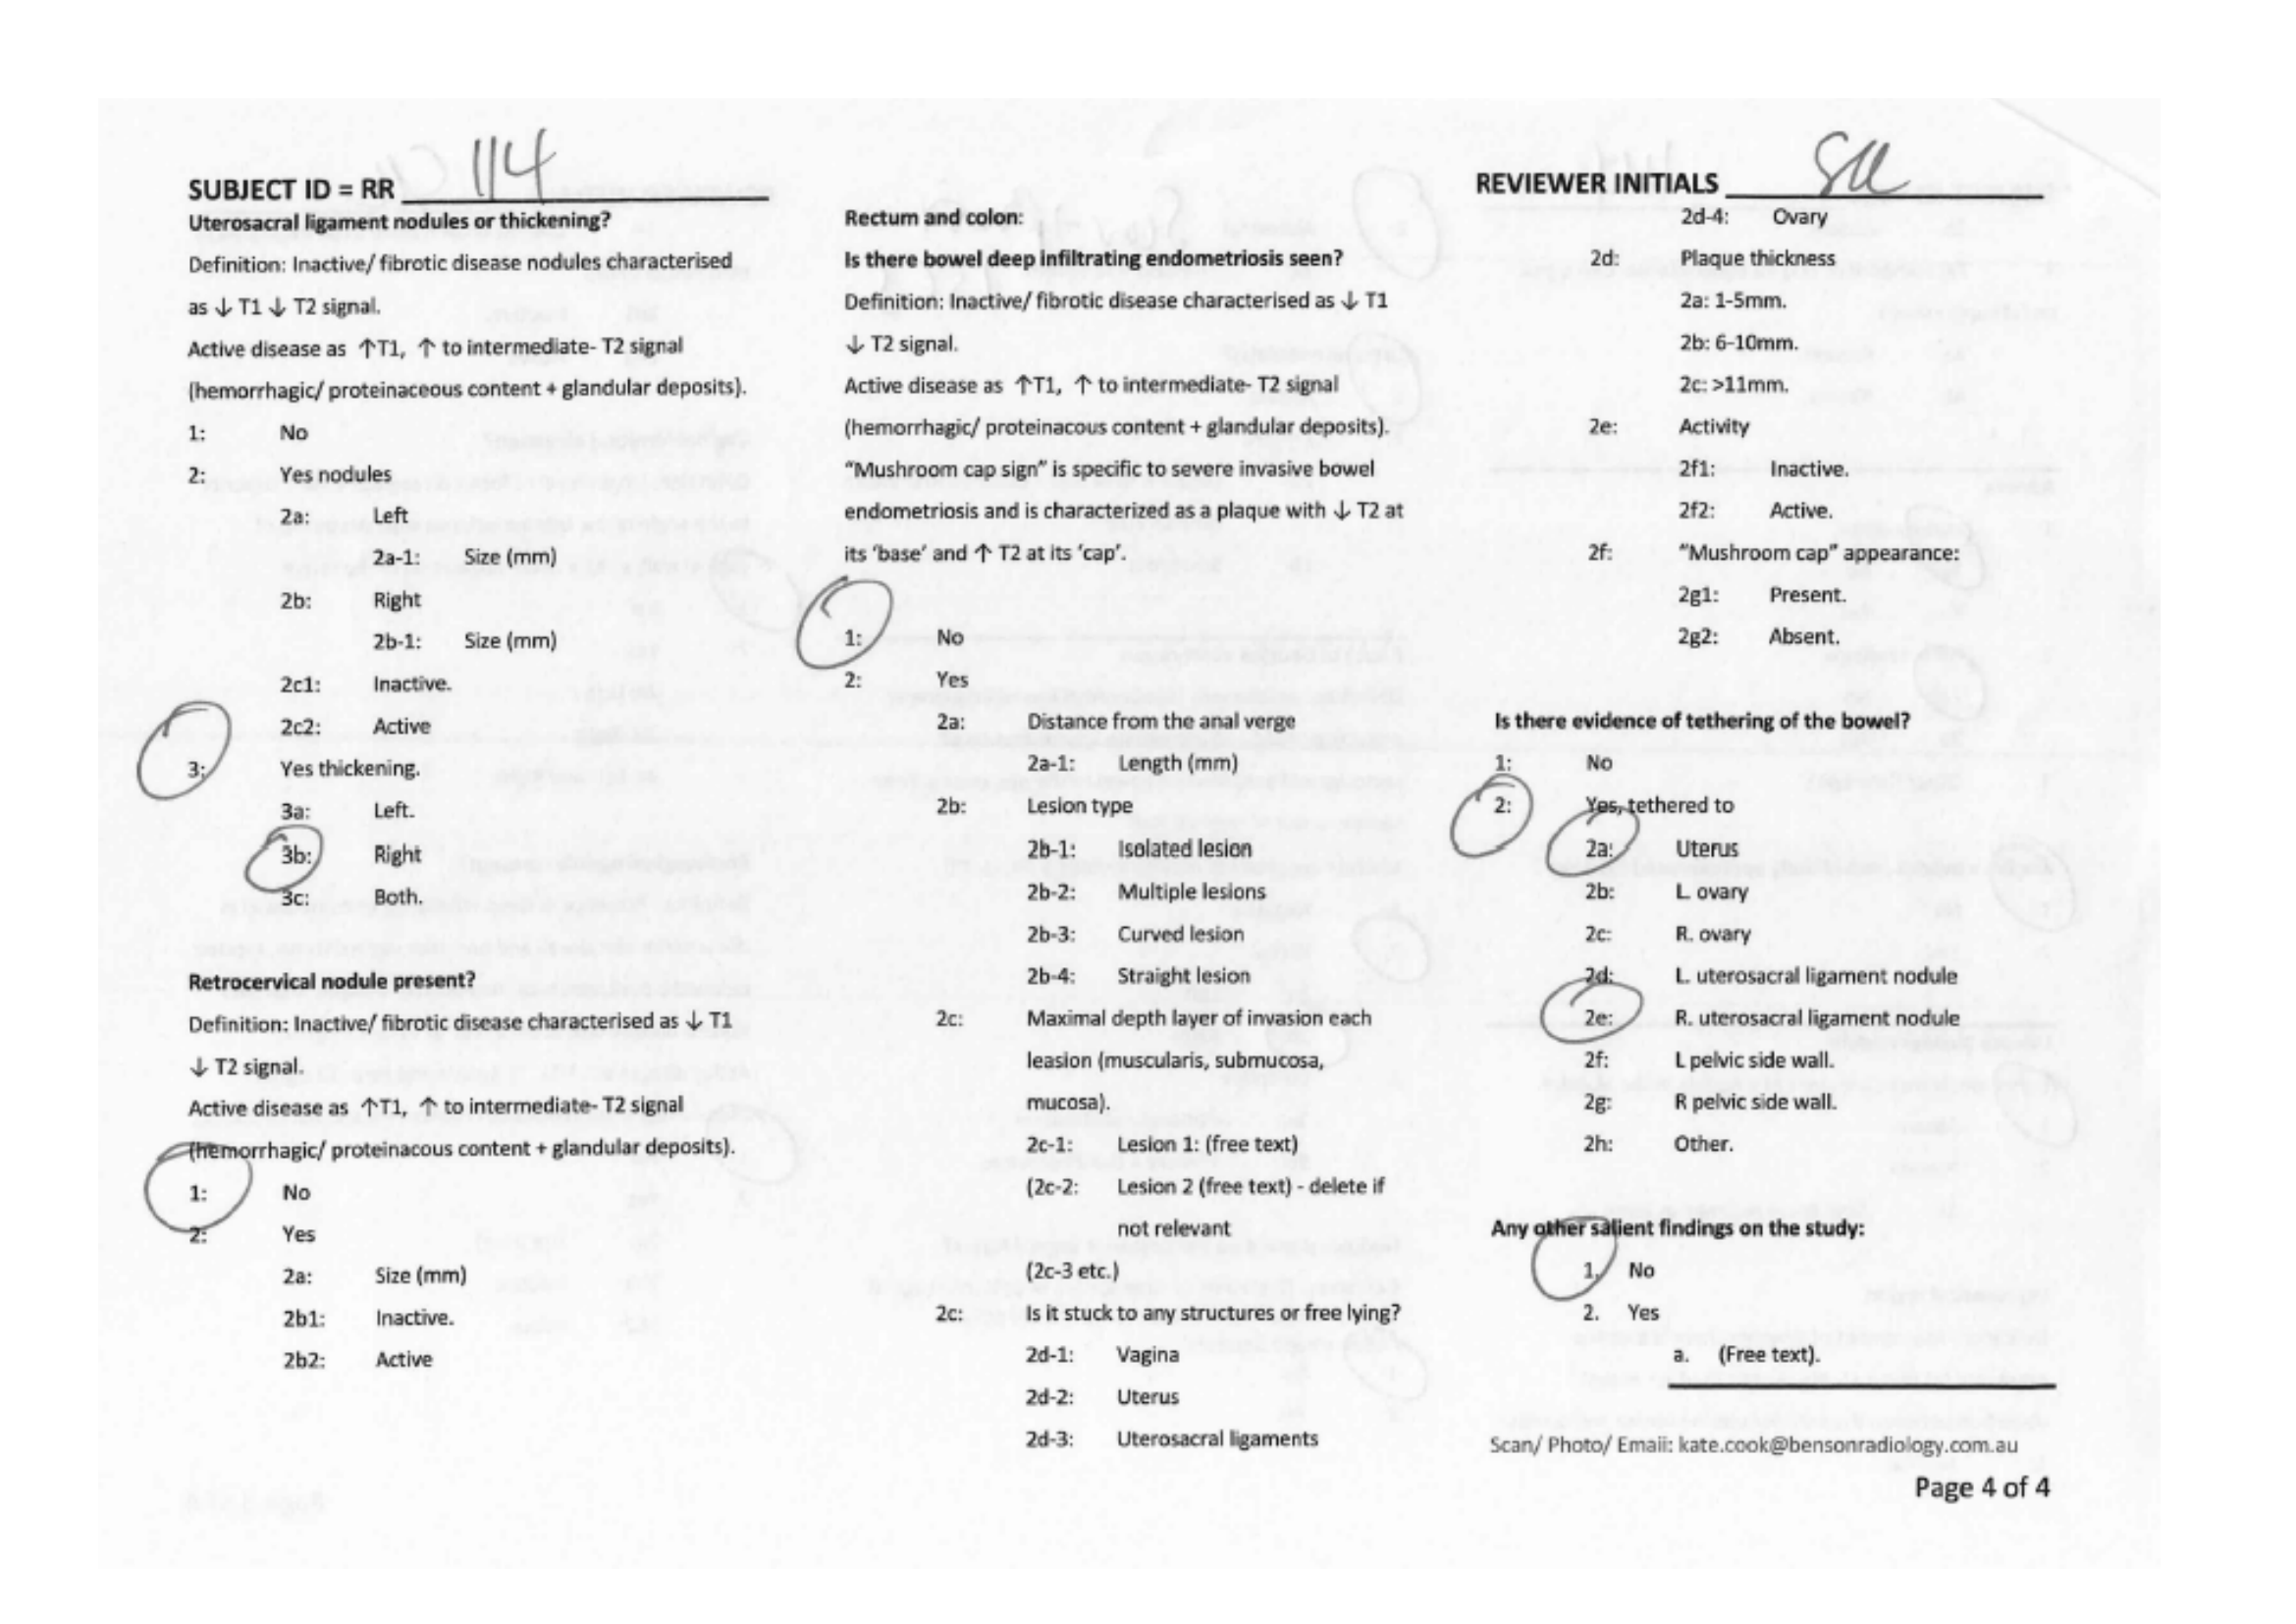 SUBJECT ID = RR 114
Uterosacral ligament nodules or thickening?
Definition: Inactive/ fibrotic disease nodules characterised
as ↓ T1 ↓ T2 signal.
Active disease as ↑T1, ↑ to intermediate- T2 signal
(hemorrhagic/ proteinaceous content + glandular deposits).
1: No
2: Yes nodules
2a: Left
2a-1: Size (mm)
2b: Right
2b-1: Size (mm)
2c1: Inactive.
2c2: Active
3: Yes thickening.
3a: Left.
3b: Right
3c: Both.
Retrocervical nodule present?
Definition: Inactive/ fibrotic disease characterised as ↓ T1
↓ T2 signal.
Active disease as ↑T1, ↑ to intermediate- T2 signal
(hemorrhagic/ proteinacous content + glandular deposits).
1: No
2: Yes
2a: Size (mm)
2b1: Inactive.
2b2: Active
Rectum and colon:
Is there bowel deep infiltrating endometriosis seen?
Definition: Inactive/ fibrotic disease characterised as ↓ T1
↓ T2 signal.
Active disease as ↑T1, ↑ to intermediate- T2 signal
(hemorrhagic/ proteinacous content + glandular deposits).
“Mushroom cap sign” is specific to severe invasive bowel
endometriosis and is characterized as a plaque with ↓ T2 at
its ‘base’ and ↑ T2 at its ‘cap’.
1: No
2: Yes
2a: Distance from the anal verge
2a-1: Length (mm)
2b: Lesion type
2b-1: Isolated lesion
2b-2: Multiple lesions
2b-3: Curved lesion
2b-4: Straight lesion
2c: Maximal depth layer of invasion each
leasion (muscularis, submucosa,
mucosa).
2c-1: Lesion 1: (free text)
(2c-2: Lesion 2 (free text) - delete if
not relevant
(2c-3 etc.)
2c: Is it stuck to any structures or free lying?
2d-1: Vagina
2d-2: Uterus
2d-3: Uterosacral ligaments
REVIEWER INITIALS
2d-4: Ovary
2d: Plaque thickness
2a: 1-5mm.
2b: 6-10mm.
2c: >11mm.
2e: Activity
2f1: Inactive.
2f2: Active.
2f: “Mushroom cap” appearance:
2g1: Present.
2g2: Absent.
Is there evidence of tethering of the bowel?
1: No
2: Yes, tethered to
2a: Uterus
2b: L. ovary
2c: R. ovary
2d: L. uterosacral ligament nodule
2e: R. uterosacral ligament nodule
2f: L pelvic side wall.
2g: R pelvic side wall.
2h: Other.
Any other salient findings on the study:
1. No
2. Yes
a. (Free text).
Scan/ Photo/ Email: kate.cook@bensonradiology.com.au
Page 4 of 4